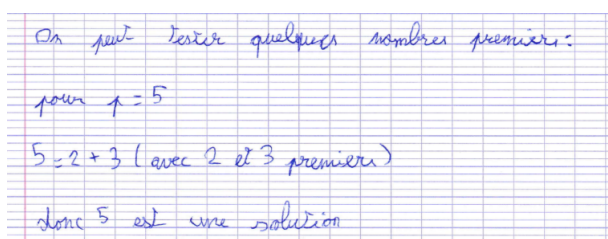 On peut tester quelques nombres premiers :
pour p = 5
5 = 2 + 3 (avec 2 et 3 premiers)
donc 5 est une solution